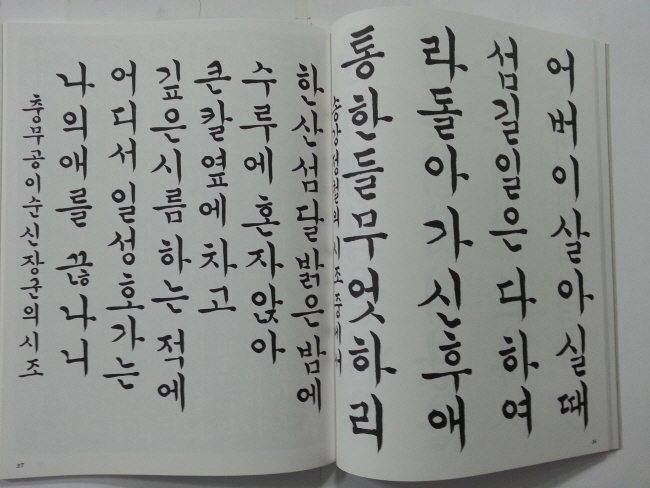 어버이살아실때
섬길일은다하여
라돌아가신후애
통한들무엇하리
송강정철의시조중에서
한산섬달밝은밤에
수루에혼자앉아
큰칼옆에차고
깊은시름하는적에
어디서일성호가는
나의애를끊나니
충무공이순신장군의시조
37